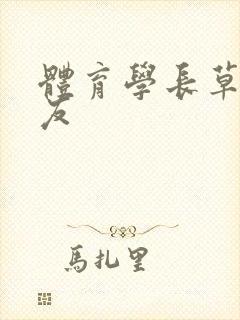 體育學長草
友
馬扎里